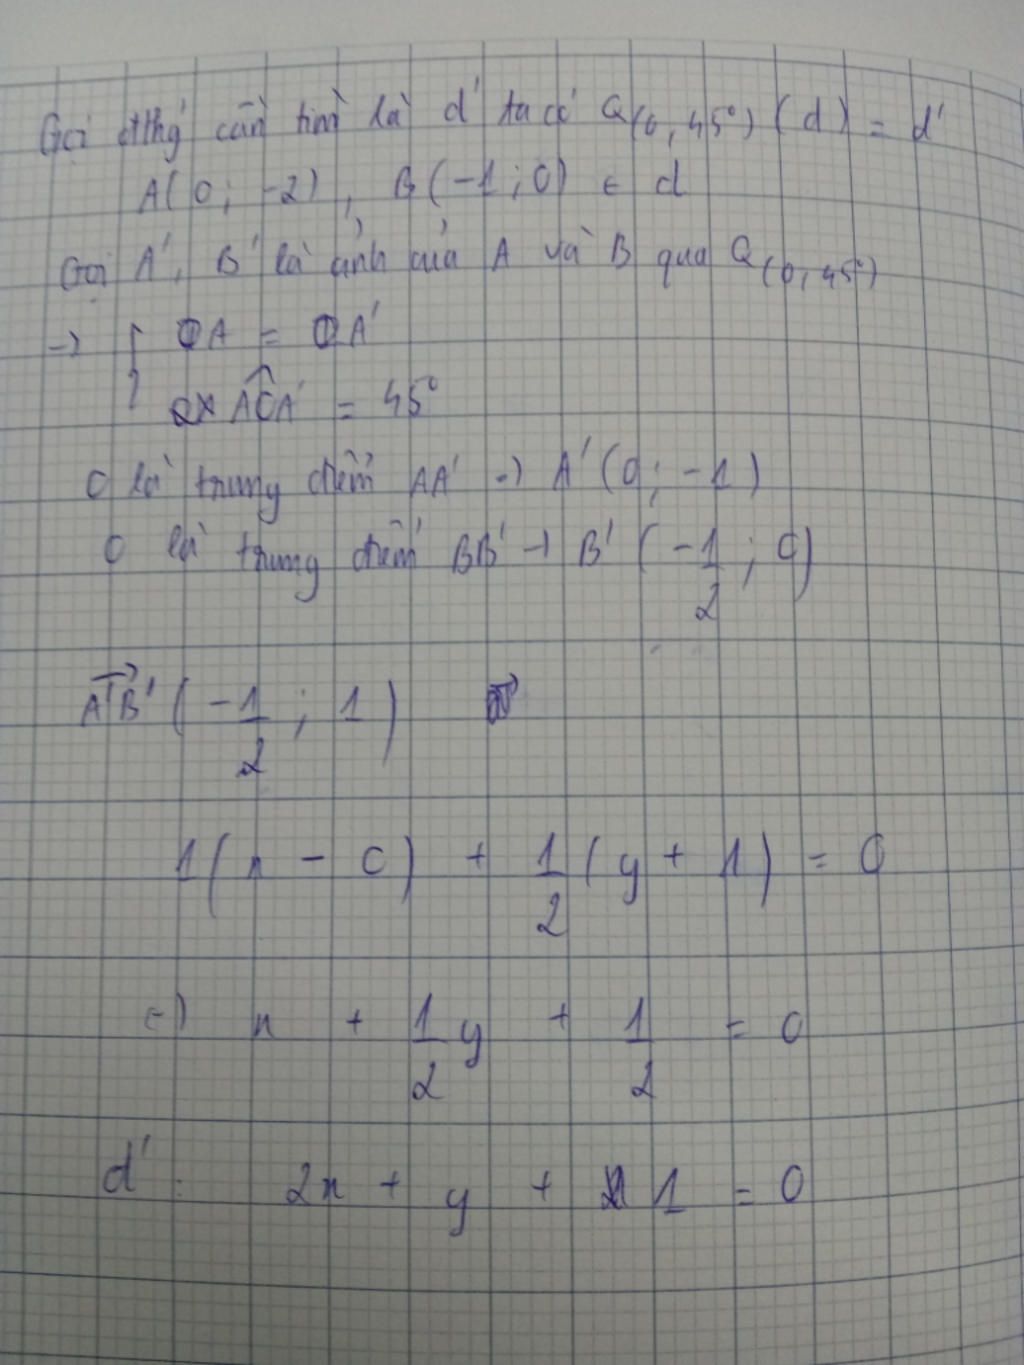 Gọi đthg cần tìm là d' ta có Q(0, 45°) (d) = d'
A(0; -2), B(-1; 0) ∈ d
Gọi A', B' là ảnh của A và B qua Q(0, 45°)
→ { OA = OA'
AOA' = 45°
O là trung điểm AA' → A'(0; -1)
O là trung điểm BB' → B'(-1/2; 0)
A'B' (-1/2; 1)
1(x - 0) + 1/2(y + 1) = 0
(=) x + 1/2 y + 1/2 = 0
d': 2x + y + 1 = 0